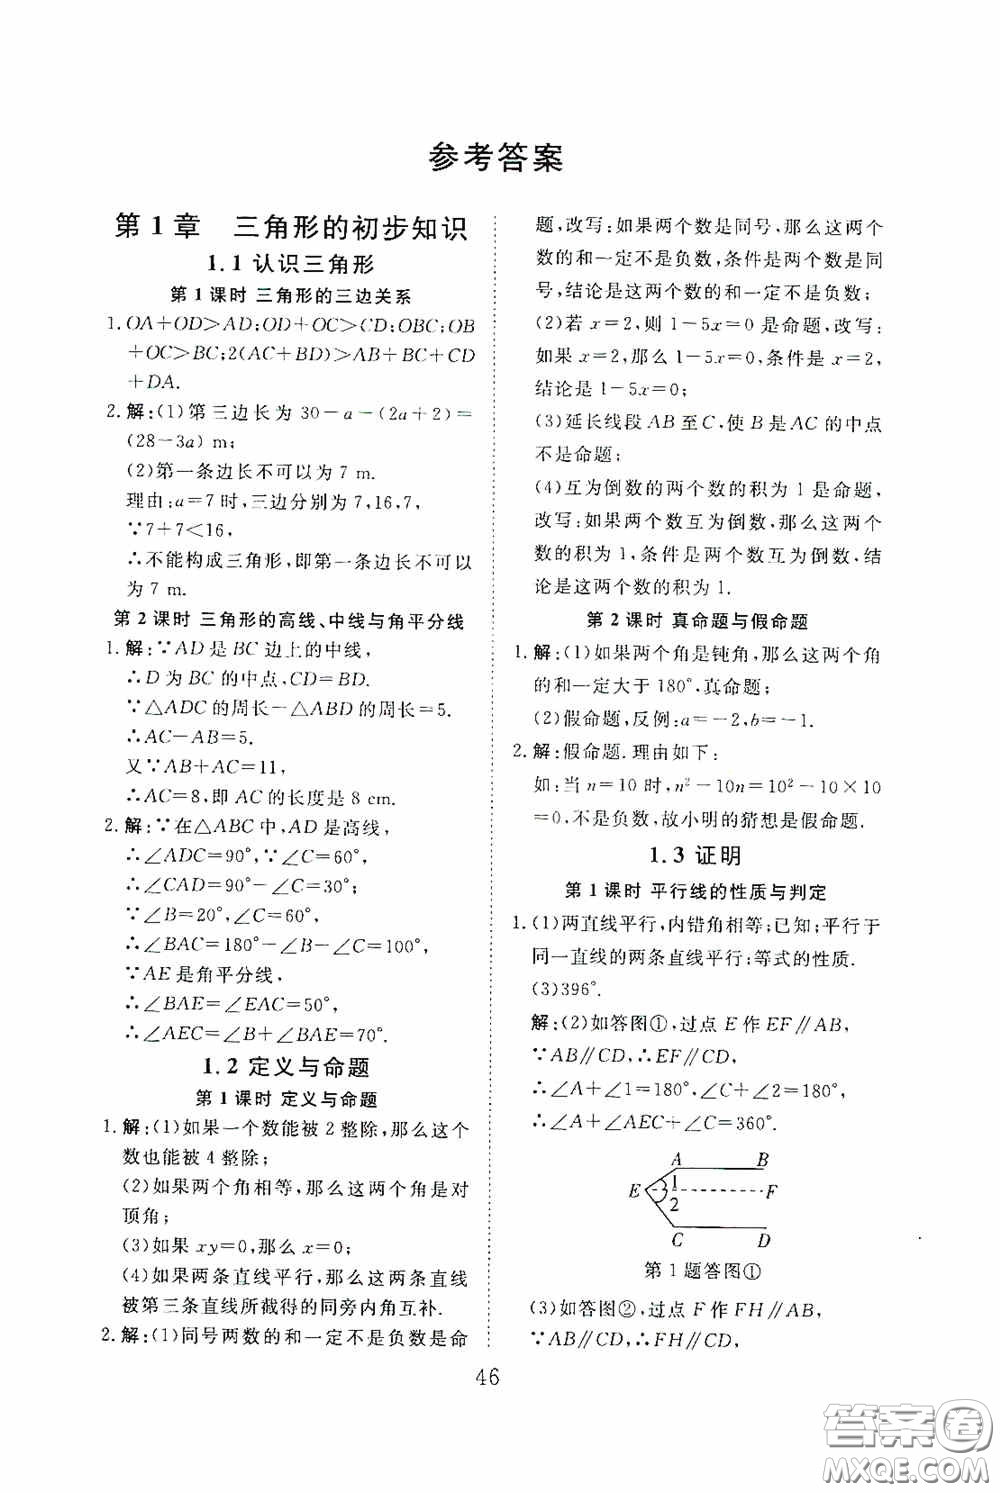 参考答案
第1章 三角形的初步知识
1.1 认识三角形
第1课时 三角形的三边关系
1.OA+OD>AD;OD+OC>CD;OBC;OB
+OC>BC;2(AC+BD)>AB+BC+CD
+DA.
2.解:(1)第三边长为30-a-(2a+2)=
(28-3a) m;
(2)第一条边长不可以为7 m.
理由:a=7时,三边分别为7,16,7,
∵7+7<16,
∴不能构成三角形,即第一条边长不可以
为7 m.
第2课时 三角形的高线、中线与角平分线
1.解:∵AD是BC边上的中线,
∴D为BC的中点,CD=BD.
∵△ADC的周长-△ABD的周长=5.
∴AC-AB=5.
又∵AB+AC=11,
∴AC=8,即AC的长度是8 cm.
2.解:∵在△ABC中,AD是高线,
∴∠ADC=90°,∵∠C=60°,
∴∠CAD=90°-∠C=30°.
∵∠B=20°,∠C=60°,
∴∠BAC=180°-∠B-∠C=100°,
∵AE是角平分线,
∴∠BAE=∠EAC=50°,
∴∠AEC=∠B+∠BAE=70°.
1.2 定义与命题
第1课时 定义与命题
1.解:(1)如果一个数能被2整除,那么这个
数也能被4整除;
(2)如果两个角相等,那么这两个角是对
顶角;
(3)如果xy=0,那么x=0;
(4)如果两条直线平行,那么这两条直线
被第三条直线所截得的同旁内角互补.
2.解:(1)同号两数的和一定不是负数是命
题,改写:如果两个数是同号,那么这两个
数的和一定不是负数,条件是两个数是同
号,结论是这两个数的和一定不是负数;
(2)若x=2,则1-5x=0是命题,改写:
如果x=2,那么1-5x=0,条件是x=2,
结论是1-5x=0;
(3)延长线段AB至C,使B是AC的中点
不是命题;
(4)互为倒数的两个数的积为1是命题,
改写:如果两个数互为倒数,那么这两个
数的积为1,条件是两个数互为倒数,结
论是这两个数的积为1.
第2课时 真命题与假命题
1.解:(1)如果两个角是钝角,那么这两个角
的和一定大于180°,真命题;
(2)假命题,反例:a=-2,b=-1.
2.解:假命题.理由如下:
如:当n=10时,n²-10n=10²-10×10
=0,不是负数,故小明的猜想是假命题.
1.3 证明
第1课时 平行线的性质与判定
1.(1)两直线平行,内错角相等;已知;平行于
同一直线的两条直线平行;等式的性质.
(3)396°.
解:(2)如答图①,过点E作EF∥AB,
∵AB∥CD,∴EF∥CD,
∴∠A+∠1=180°,∠C+∠2=180°,
∴∠A+∠AEC+∠C=360°.
A B
E 1 F
2
C D
第1题答图①
(3)如答图②,过点F作FH∥AB,
∵AB∥CD,∴FH∥CD,
46
答案卷
MXQE.COM